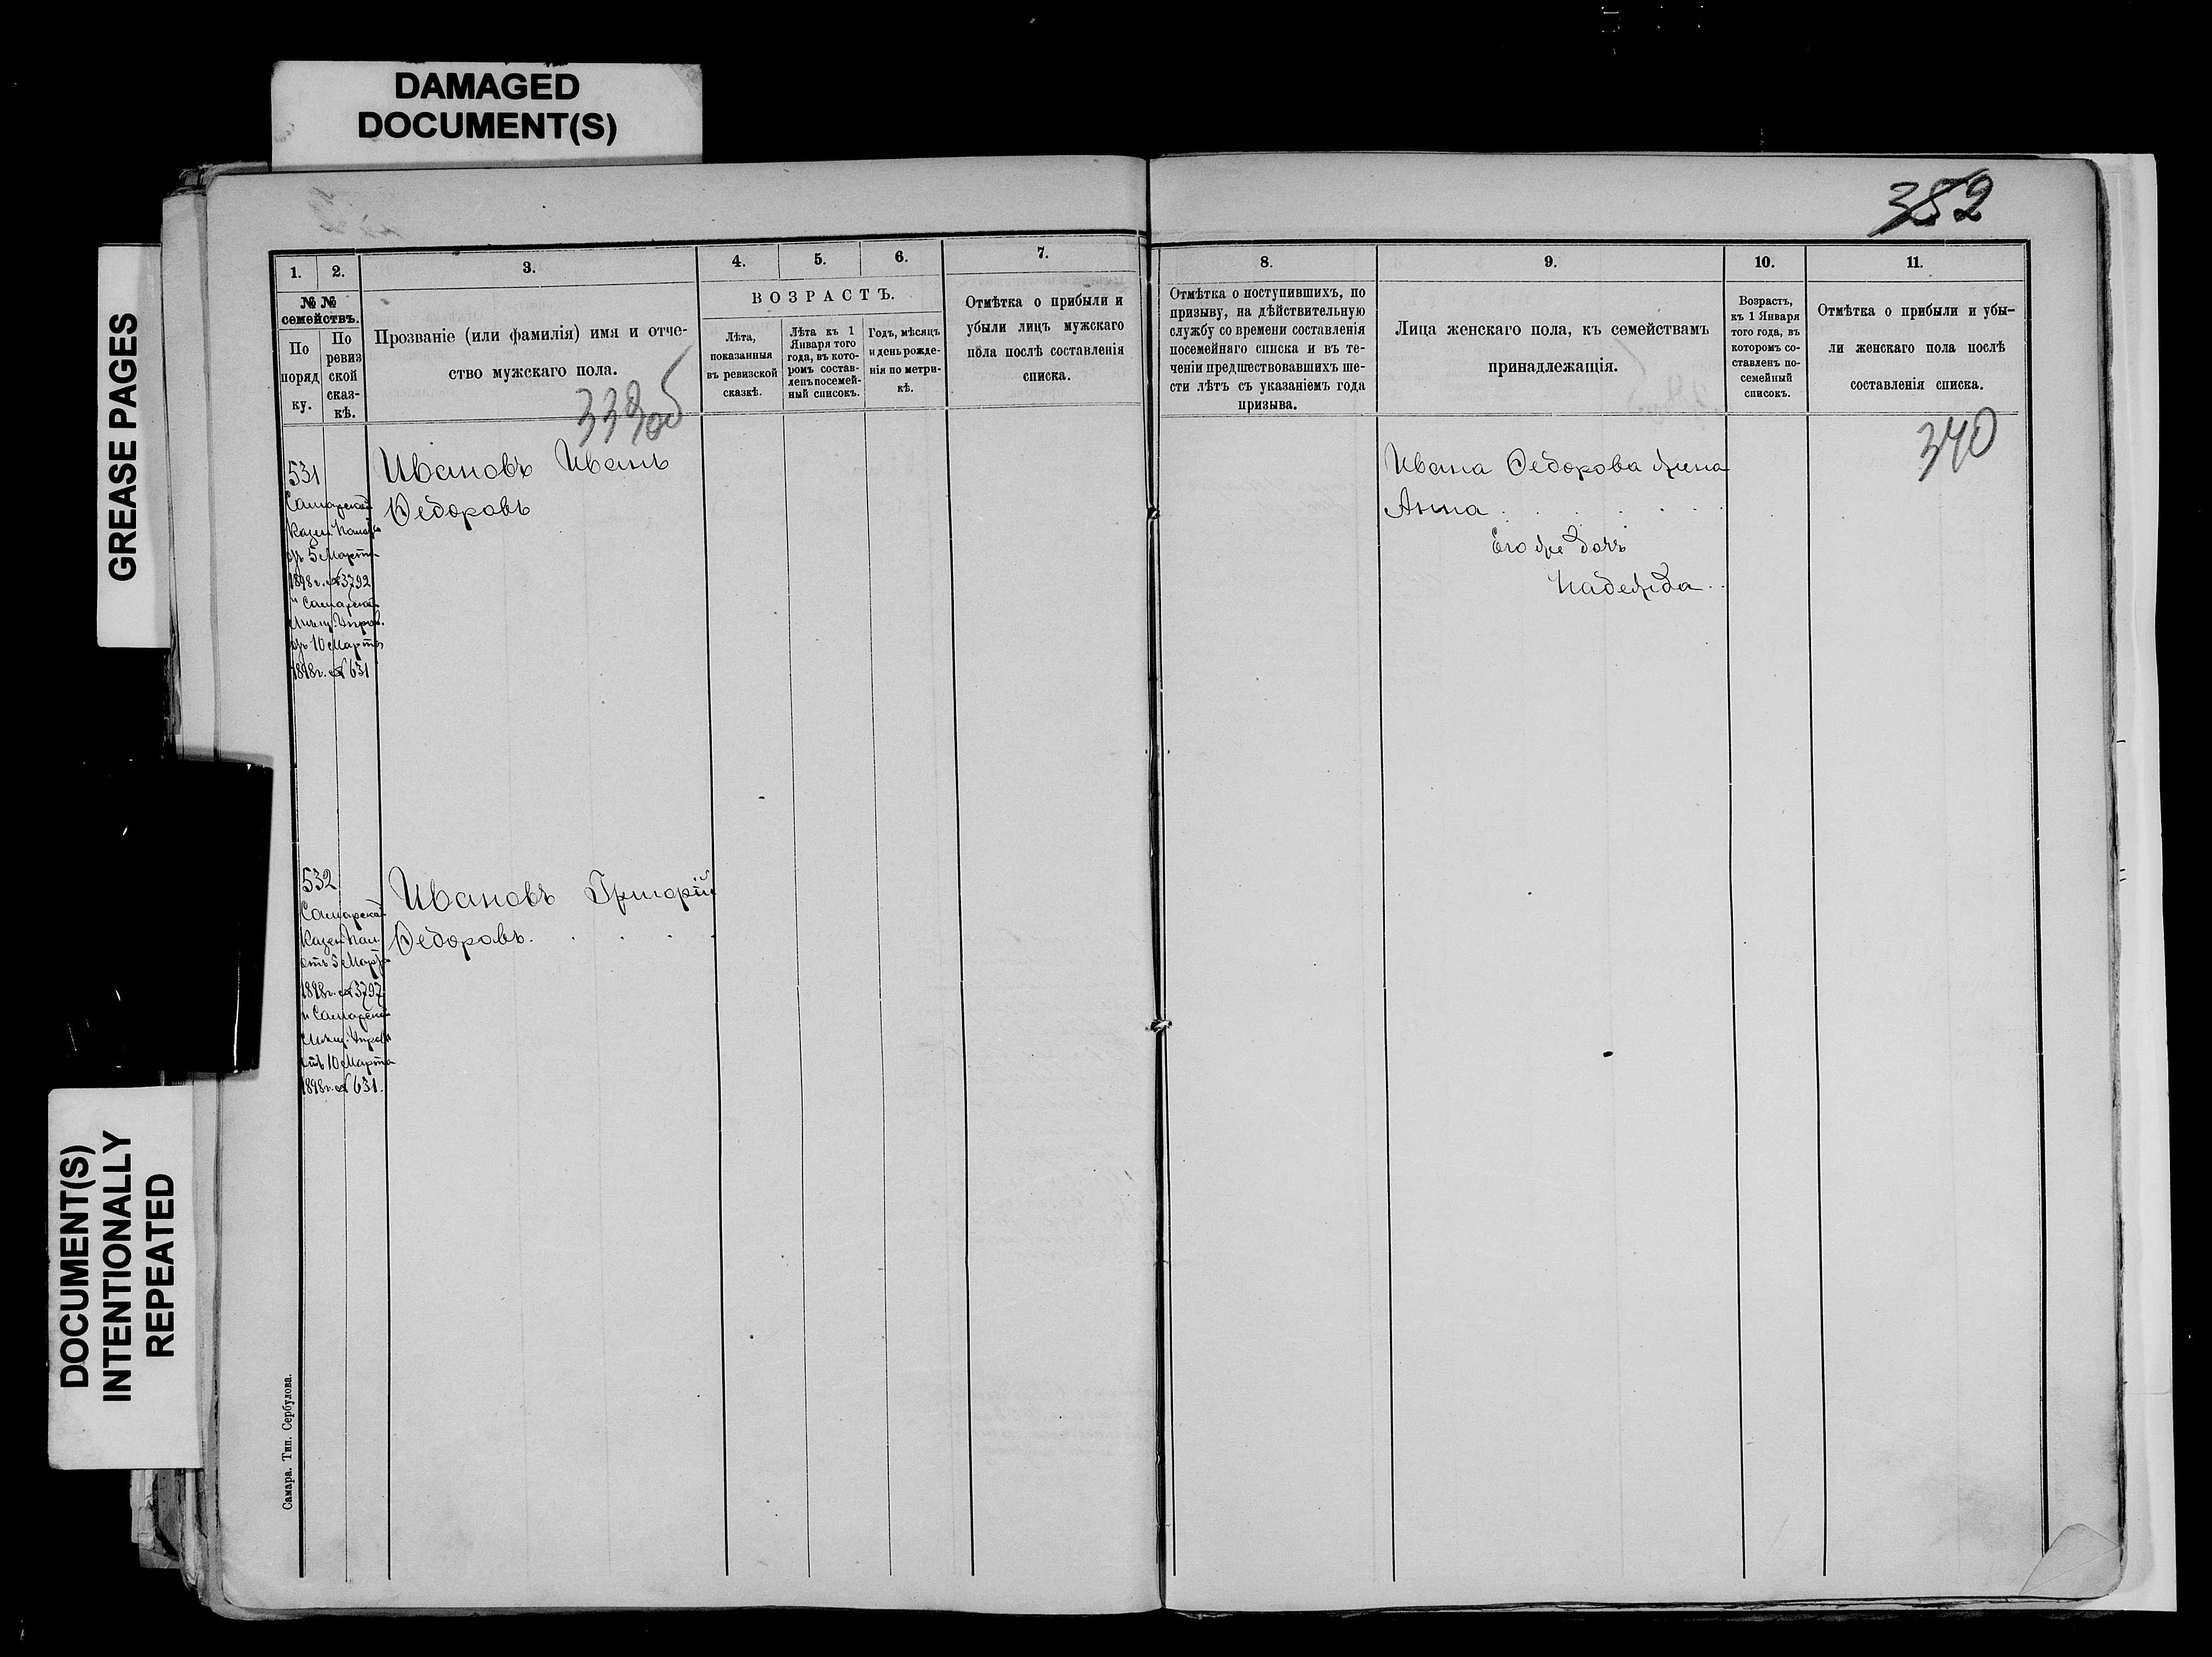 DAMAGED
DOCUMENT(S)
GREASE PAGES
DOCUMENT(S)
INTENTIONALLY
REPEATED
352
1.
2.
3.
4.
5.
6.
7.
8.
9.
10.
11.
№ №
семействъ.
По
поряд
ку.
По
ревиз
ской
сказ-
кѣ.
Прозваніе (или фамилія) имя и отче-
ство мужскаго пола.
ВОЗРАСТЪ.
Лѣта,
показанныя
въ ревизской
сказкѣ.
Лѣта къ 1
Января того
года, въ кото-
ромъ состав-
ленъ посемей-
ный списокъ.
Годъ, мѣсяцъ
и день рожде-
нія по метри-
кѣ.
Отмѣтка о прибыли и
убыли лицъ мужскаго
пола послѣ составленія
списка.
Отмѣтка о поступившихъ, по
призыву, на дѣйствительную
службу со времени составленія
посемейнаго списка и въ те-
ченіи предшествовавшихъ ше-
сти лѣтъ съ указаніемъ года
призыва.
Лица женскаго пола, къ семействамъ
принадлежащія.
Возрастъ,
къ 1 Января
того года, въ
которомъ со-
ставленъ по-
семейный
списокъ.
Отмѣтка о прибыли и убы-
ли женскаго пола послѣ
составленія списка.
339об
340
531
Самарской
Казен. Палаты
отъ 5 Марта
1898 г. № 3792
и Самарской
Мѣщ. Управ.
отъ 10 Марта
1898 г. № 631
Ивановъ Иванъ
Ѳедоровъ
Ивана Ѳедорова жена
Анна
Его же дочь
Надежда
532
Самарской
Казен. Пал.
отъ 5 Марта
1898 г. № 3797
и Самарской
Мѣщ. Управы
отъ 10 Марта
1898 г. № 631.
Ивановъ Григорій
Ѳедоровъ.
Самара. Тип. Сербулова.